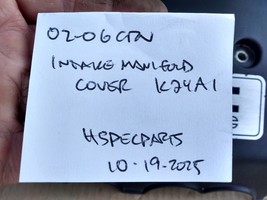 02-06 CRV
INTAKE MANIFOLD
COVER K24A1
HSPECPARTS
10-19-2025